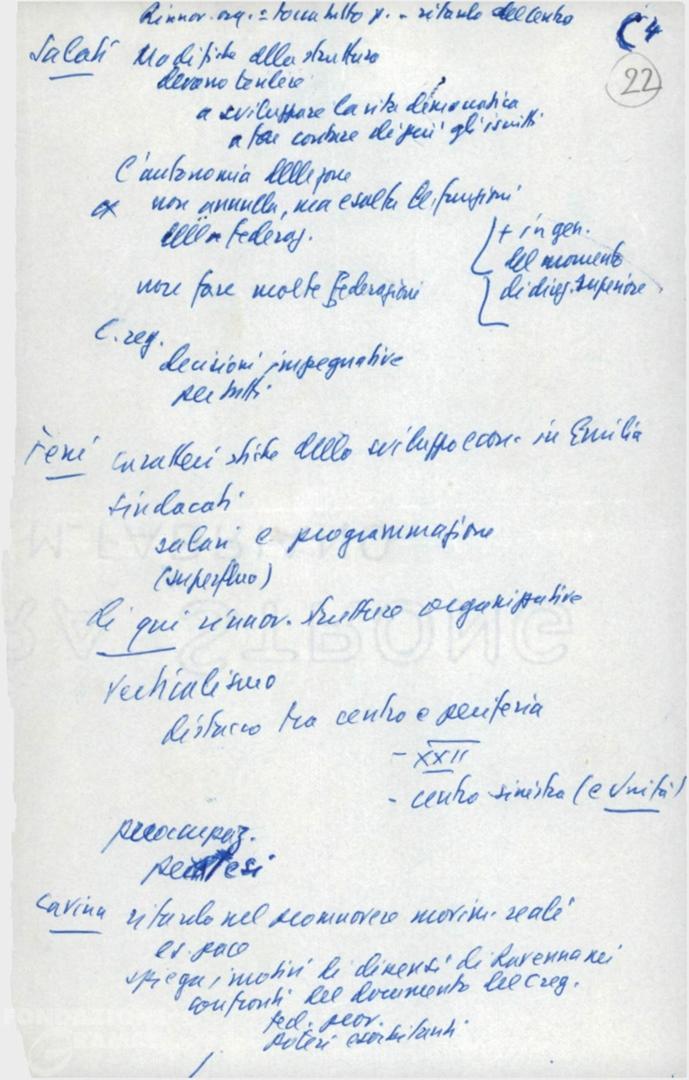 Rinnov. org. = tocca tutto p. - ritardo del centro
C4
22
Salati Modifiche della struttura
devono tendere
a sviluppare la vita democratica
a far contare di più gli iscritti
L'autonomia delle zone
non annulla, ma esalta le funzioni
della Federaz.
+ in gen.
del momento
di direz. superiore
non fare molte Federazioni
C. reg.
decisioni impegnative
per tutti
caratteristiche dello sviluppo econ. in Emilia
Sindacati
salari e programmazione
(superfluo)
di qui rinnov. strutture organizzative
Verticalismo
distacco tra centro e periferia
- XXII
- centro-sinistra (e Unità)
preoccupaz.
Cavina ritardo nel promuovere movim. reale
es. pace
spiega i motivi di dimensi di Ravenna nei
confronti del documento del C reg.
fed. prov.
poteri esorbitanti